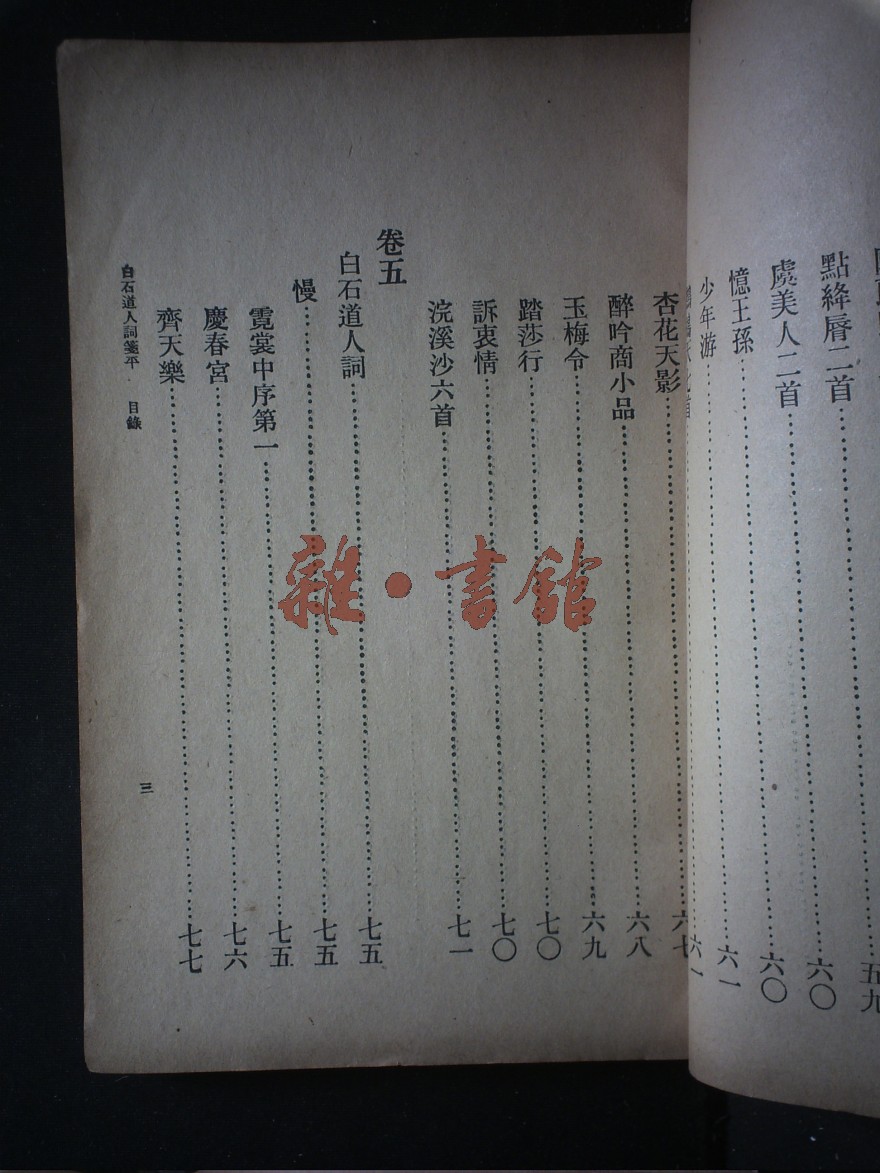 五九
點絳脣二首……六〇
虞美人二首……六〇
憶王孫……六一
少年游……六一
杏花天影……六七
醉吟商小品……六八
玉梅令……六九
踏莎行……七〇
訴衷情……七〇
浣溪沙六首……七一
卷五
白石道人詞……七五
慢……七五
霓裳中序第一……七五
慶春宮……七六
齊天樂……七七
白石道人詞箋平 目錄
三
雜·書館